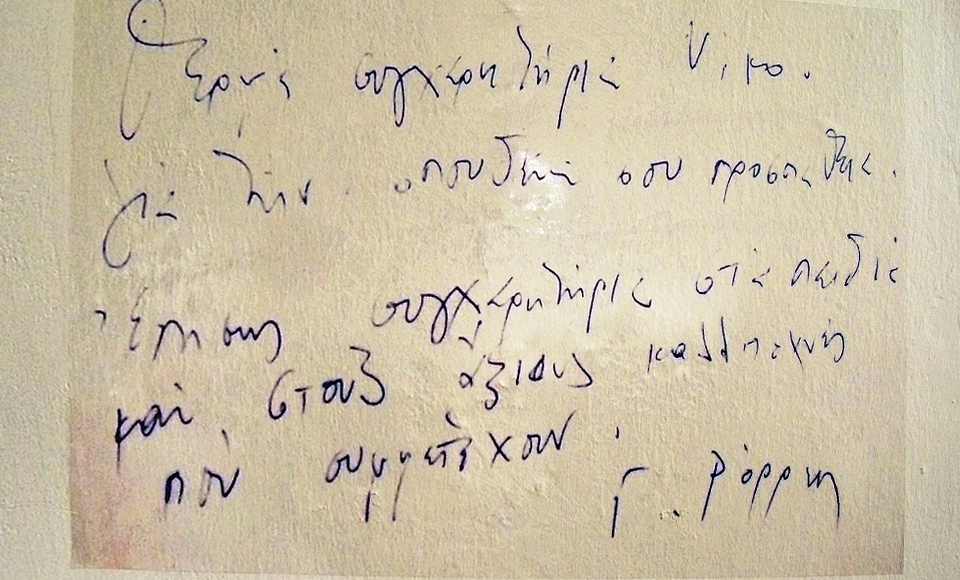 Θερμά συγχαρητήρια Νίκο.
για την σπουδαία σου προσπάθεια.
Επίσης συγχαρητήρια στα παιδιά
και στους άξιους καλλιτέχνες
που συμμετέχουν.
Γ. Ρόρρης